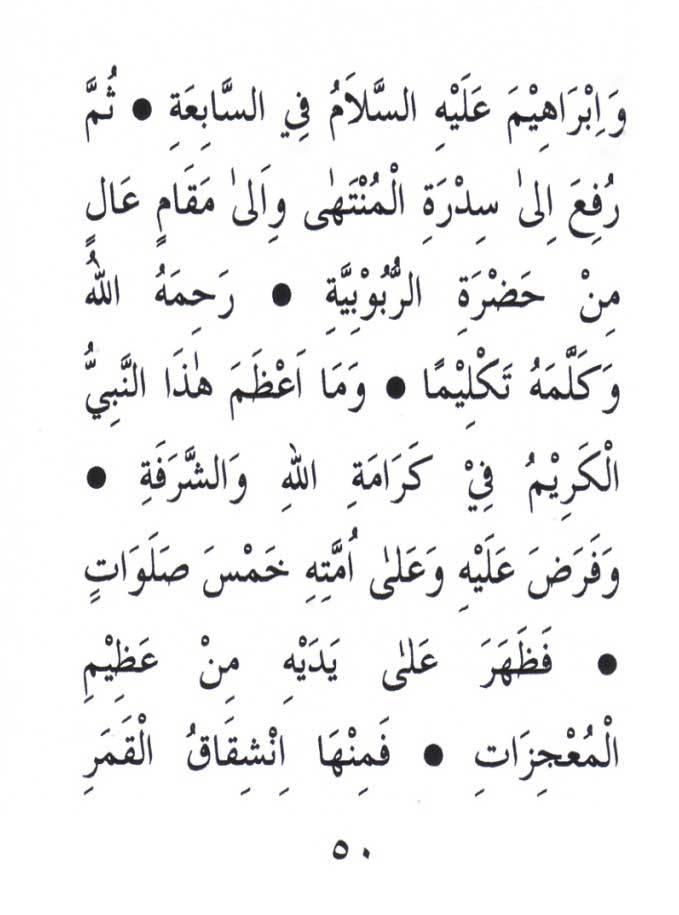 وَاِبْرَاهِيْمَ عَلَيْهِ السَّلاَمُ فِي السَّابِعَةِ ● ثُمَّ
رُفِعَ اِلىٰ سِدْرَةِ الْمُنْتَهٰى وِاَلىٰ مَقَامٍ عَالٍ
مِنْ حَضْرَةِ الرُّبُوْبِيَّةِ ● رَحِمَهُ اللهُ
وَكَلَّمَهُ تَكْلِيْمًا ● وَمَا اَعْظَمَ هٰذَا النَّبِيُّ
الْكَرِيْمُ فِيْ كَرَامَةِ اللهِ وَالشَّرَفَةِ ●
وَفَرَضَ عَلَيْهِ وَعَلىٰ اُمَّتِهِ خَمْسَ صَلَوَاتٍ
● فَظَهَرَ عَلىٰ يَدَيْهِ مِنْ عَظِيْمِ
الْمُعْجِزَاتِ ● فَمِنْهَا اِنْشِقَاقُ الْقَمَرِ
٥٠